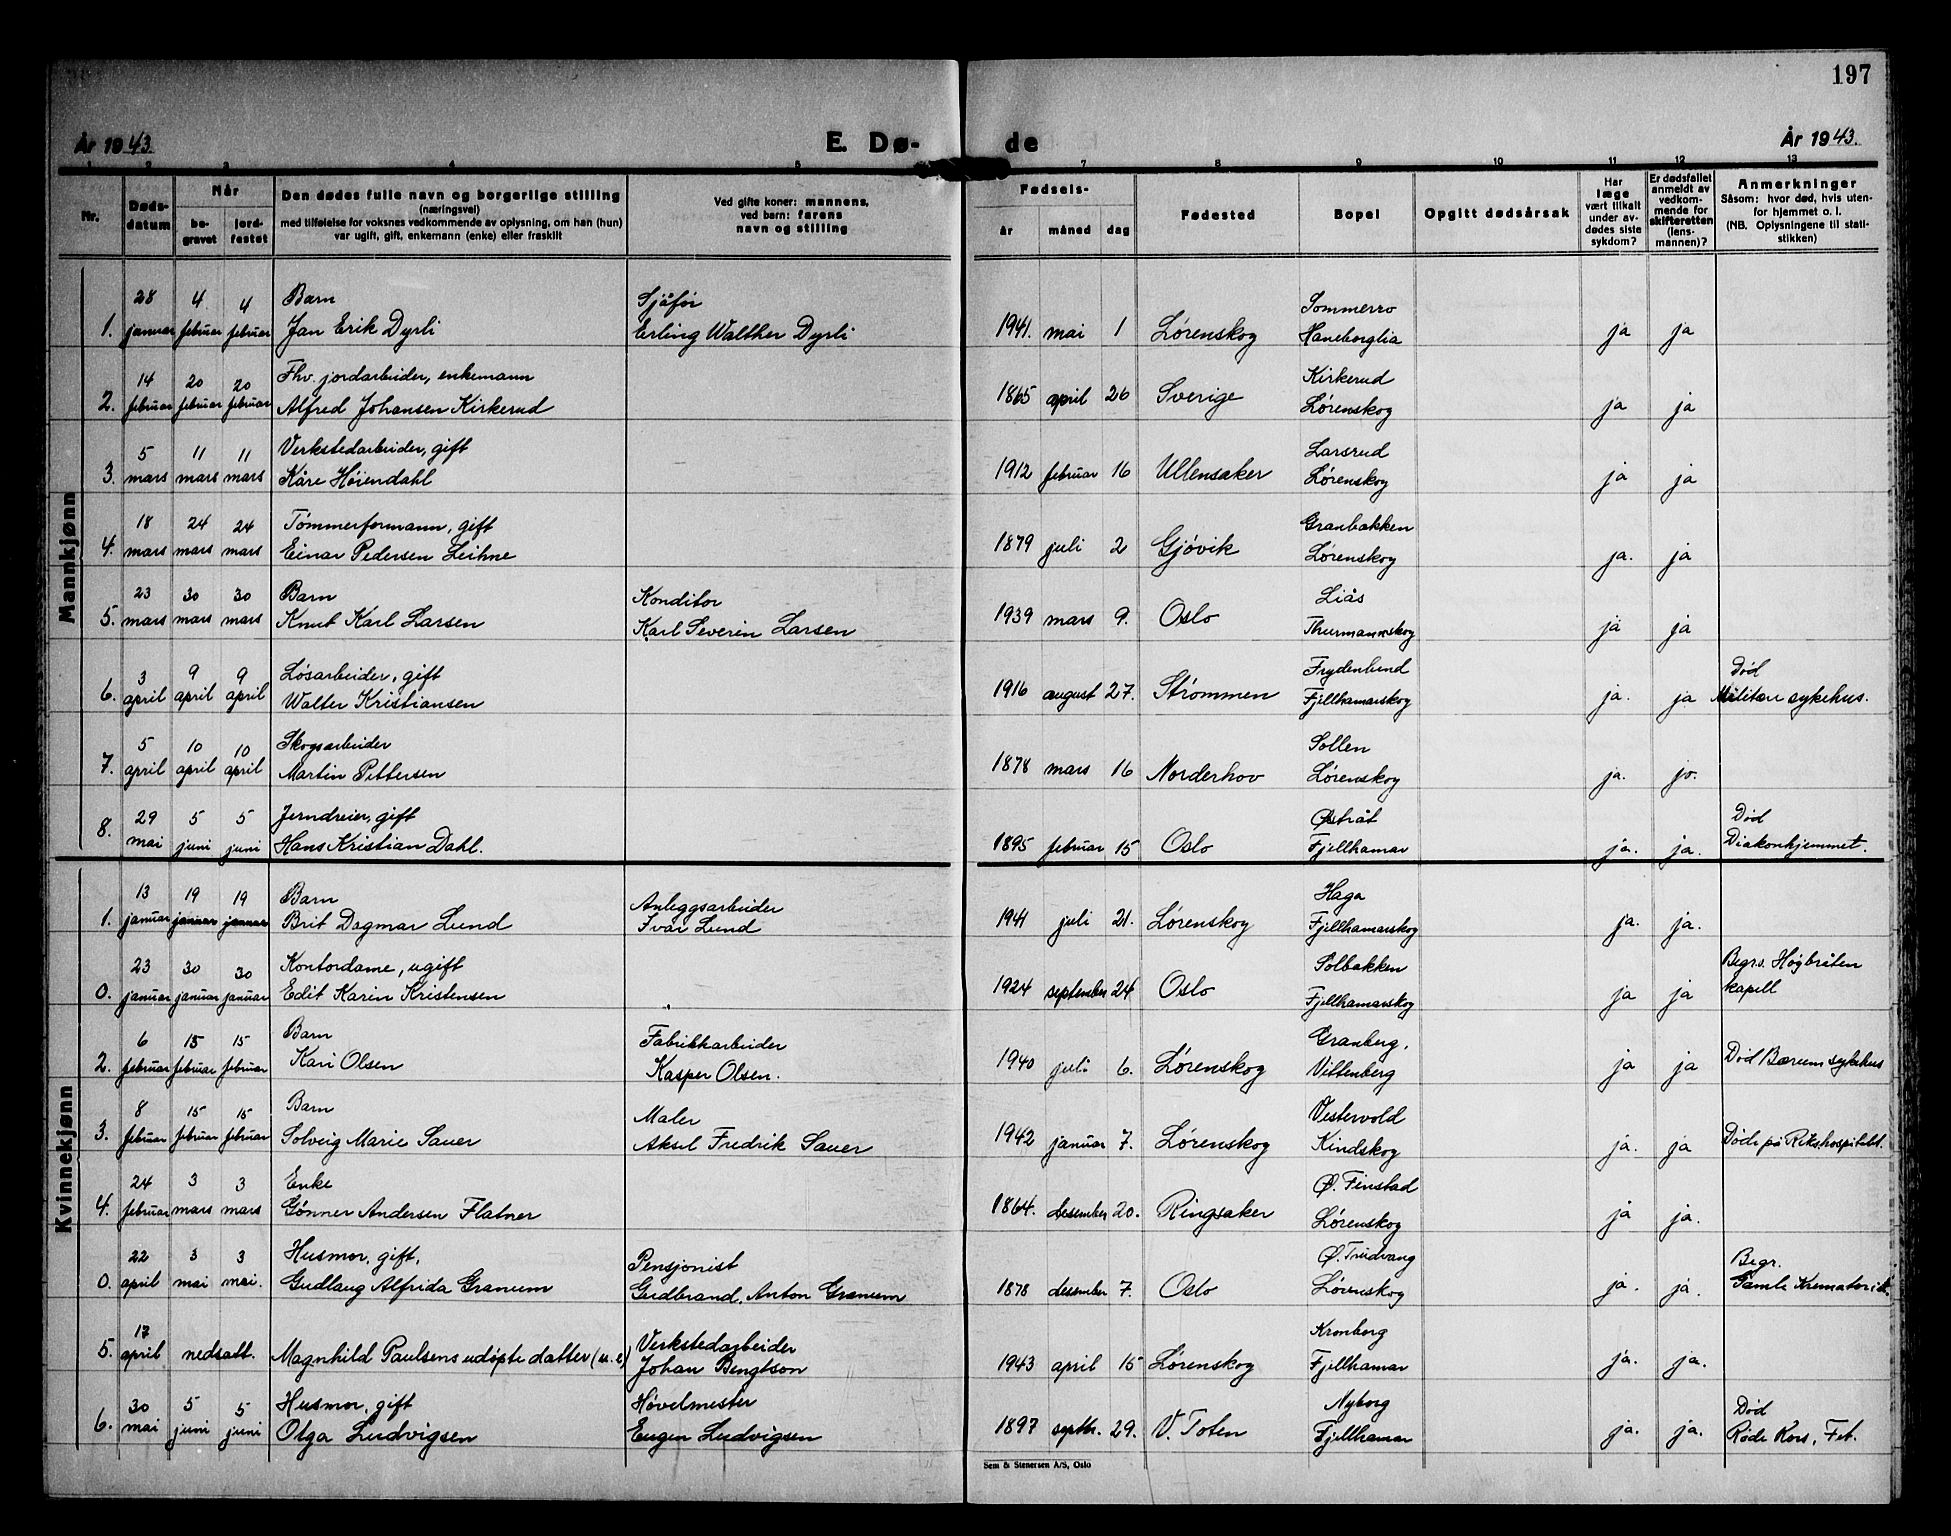 197
År 1943.
E. Dø-
de
År 1943.
1 2 3 4 5 7 8 9 10 11 12 13
Nr.
Døds-
datum
Når
be-
gravet
jord-
festet
Den dødes fulle navn og borgerlige stilling
(næringsvei)
med tilføielse for voksnes vedkommende av oplysning, om han (hun)
var ugift, gift, enkemann (enke) eller fraskilt
Ved gifte koner: mannens,
ved barn: farens
navn og stilling
Fødsels-
år måned dag
Fødested
Bopel
Opgitt dødsårsak
Har
læge
vært tilkalt
under av-
dødes siste
sykdom?
Er dødsfallet
anmeldt av
vedkom-
mende for
skifteretten
(lens-
mannen)?
Anmerkninger
Såsom: hvor død, hvis uten-
for hjemmet o. l.
(NB. Oplysningene til stati-
stikken)
Mannkjønn
28 4 4 Barn Sjåfør Sommerro
1. januar februar februar Jan Erik Dyrli Erling Walther Dyrli 1941. mai 1 Lørenskog Haneborglia ja ja
14 20 20 Fhv. jordarbeider, enkemann Kirkerud
2. februar februar februar Alfred Johansen Kirkerud 1865 april 26 Sverige Lørenskog ja ja
5 11 11 Verkstedarbeider, gift Larsrud
3. mars mars mars Kåre Høiendahl 1912 februar 16 Ullensaker Lørenskog ja ja
18 24 24 Tømmerformann, gift Granbakken
4. mars mars mars Einar Pedersen Leihne 1879 juli 2 Gjøvik Lørenskog ja. ja
23 30 30 Barn Konditor Liås
5. mars mars mars Knut Karl Larsen Karl Severin Larsen 1939 mars 9. Oslo Thurmannskog ja ja
3 9 9 Løsarbeider, gift Frydenlund Død
6. april april april Walter Kristiansen 1916 august 27. Strømmen Fjellhamarskog ja. ja Militær sykehus.
5 10 10 Skogsarbeider Sollen
7. april april april Martin Pettersen 1878 mars 16 Norderhov Lørenskog ja. ja.
29 5 5 Jerndreier, gift Østråt Død
8. mai juni juni Hans Kristian Dahl. 1895 februar 15 Oslo Fjellhamar ja. ja. Diakonhjemmet.
Kvinnekjønn
13 19 19 Barn Anleggsarbeider Haga
1. januar januar januar Brit Dagmar Lund Ivar Lund 1941 juli 21. Lørenskog Fjellhamarskog ja. ja.
23 30 30 Kontordame, ugift Solbakken Begr. Høgbråten
0. januar januar januar Edit Karin Kristensen 1924 september 24 Oslo Fjellhamarskog ja ja kapell
6 15 15 Barn Fabrikkarbeider Granberg,
2. februar februar februar Kari Olsen Kasper Olsen. 1940 juli 6. Lørenskog Vittenberg ja ja Død Bærum sykehus
8 15 15 Barn Maler Vestervold
3. februar februar februar Solveig Marie Sauer Aksel Fredrik Sauer 1942 januar 7. Lørenskog Kindskog ja. ja Død på Rikshospitalet.
24 3 3 Enke Ø. Finstad
4. februar mars mars Gønner Andersen Flatner 1864. desember 20. Ringsaker Lørenskog ja ja.
22 3 3 Husmor, gift, Pensjonist Ø. Trudvang Begr.
0. april mai mai. Gudlaug Alfrida Granum Gudbrand Anton Granum 1878 desember 7. Oslo Lørenskog ja. ja. Gamle Krematorie
17 Verkstedarbeider Kronborg
5. april nedsatt. Magnhild Paulsens udøpte datter (u. e) Johan Bengtson 1943 april 15 Lørenskog Fjellhamar ja. ja.
30 5 5 Husmor, gift Høvelmester Nyborg Død
6. mai juni juni Olga Ludvigsen Eugen Ludvigsen 1897 septbr. 29. V. Toten Fjellhamar ja. ja. Røde Kors,
Sem & Stenersen A/S, Oslo